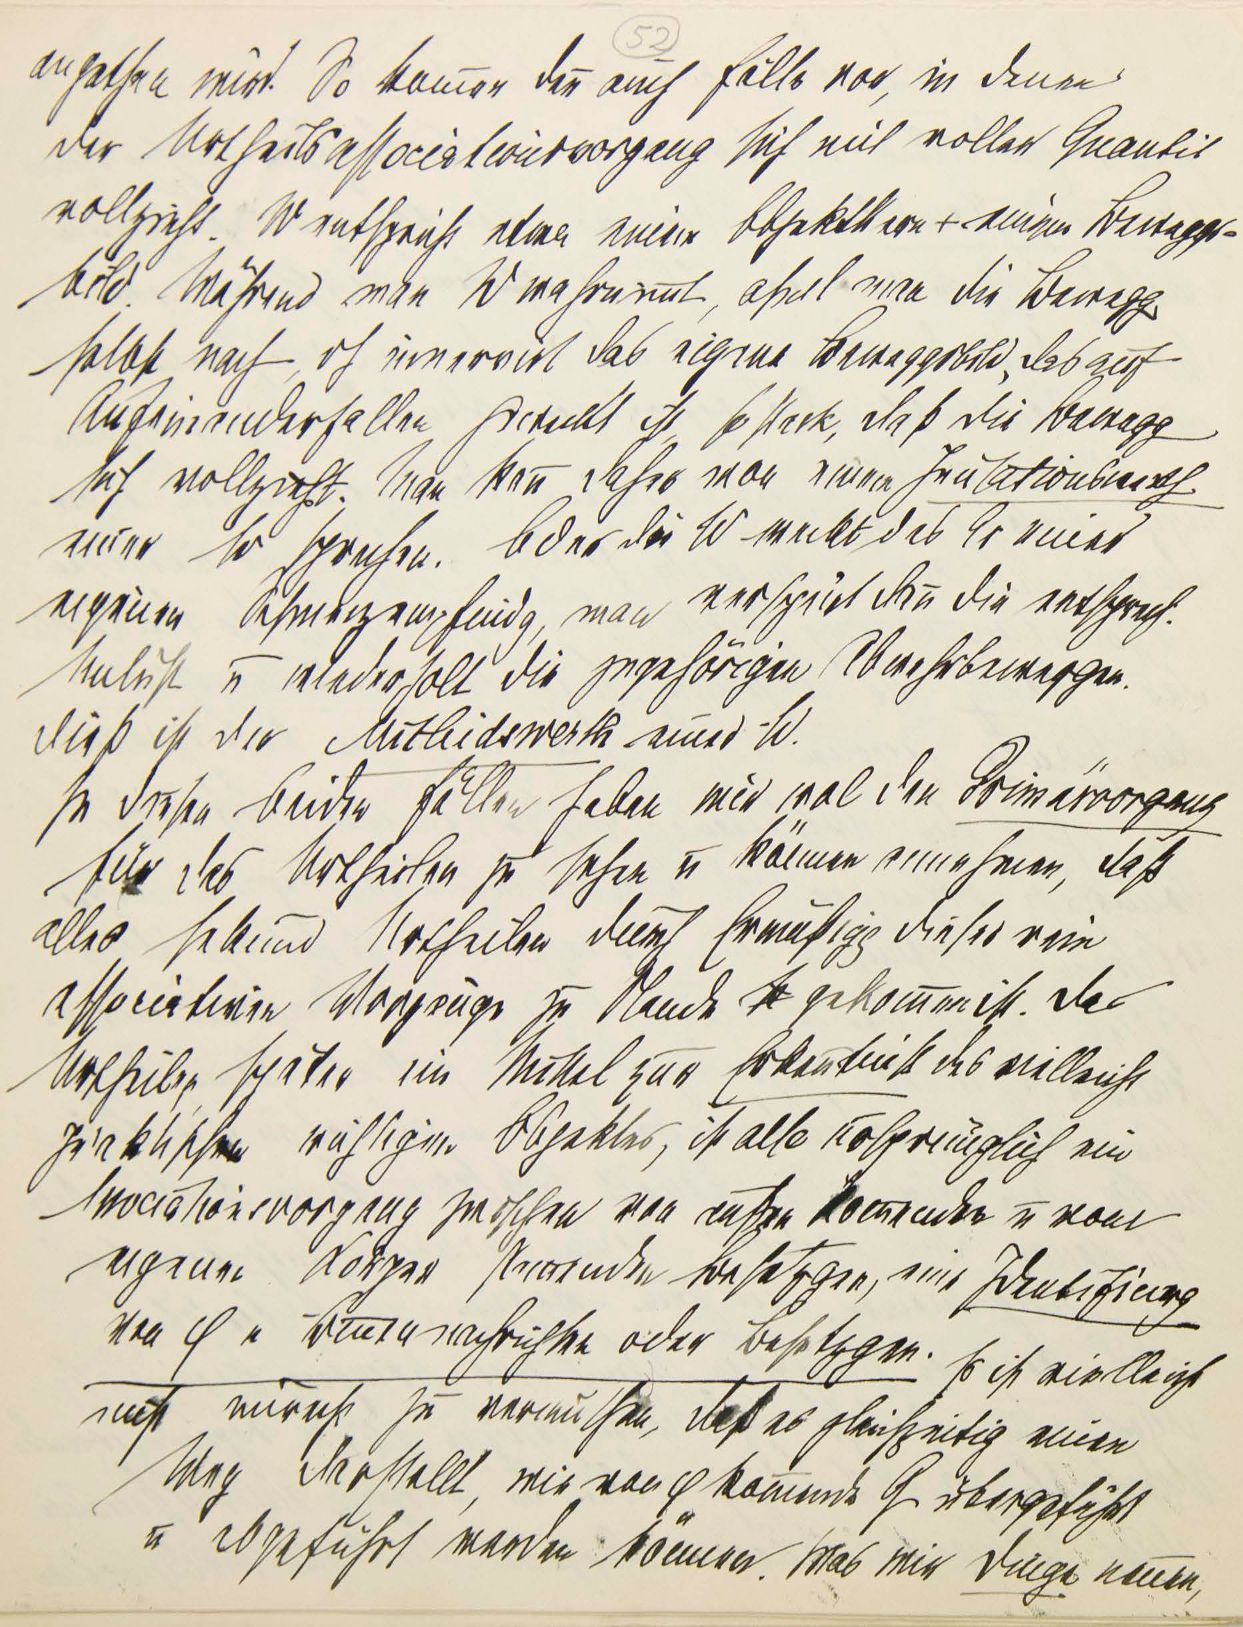 52
angethan wird. So komen den auch Fälle vor, in denen
der Urtheilsassociationsvorgang sich mit voller Quantit
vollzieht. W entspricht etwa einem Objektkern + einem Beweggs-
bild. Während man W wahrnimt, ahmt man die Bewegg
selbst nach, dh innervirt das eigene Beweggsbild, das auf
Aufeinanderfallen geweckt ist, so stark, daß die Bewegg
sich vollzieht. Man kan daher von einem Imitationswerth
einer W sprechen. Oder die W weckt das Er einer
eigenen Schmerzempfindg, man verspürt dan die entsprech.
Unlust u wiederholt die zugehörigen Abwehrbeweggen.
Dieß ist der Mitleidswerth einer W.
In diesen beiden Fällen haben wir wol den Primärvorgang
für das Urtheilen zu sehen u können annehmen, daß
alles sekund Urtheilen durch Ermäßigg dieser rein
associativen Vorgänge zu Stande gekomen ist. Das
Urtheilen, später ein Mittel zur Erkentniß des vielleicht
praktischen wichtigen Objektes, ist also ursprünglich ein
Associationsvorgang zwischen von außen komenden u vom
eigenen Körper stamenden Besetzgen, eine Identifizierg
von φ u Binennachrichten oder Besetzgen. Es ist vielleicht
nicht unrecht zu vermuthen, daß es gleichzeitig einen
Weg darstellt, wie von φ komende Q übergeführt
u abgeführt werden können. Was wir Dinge nenen,